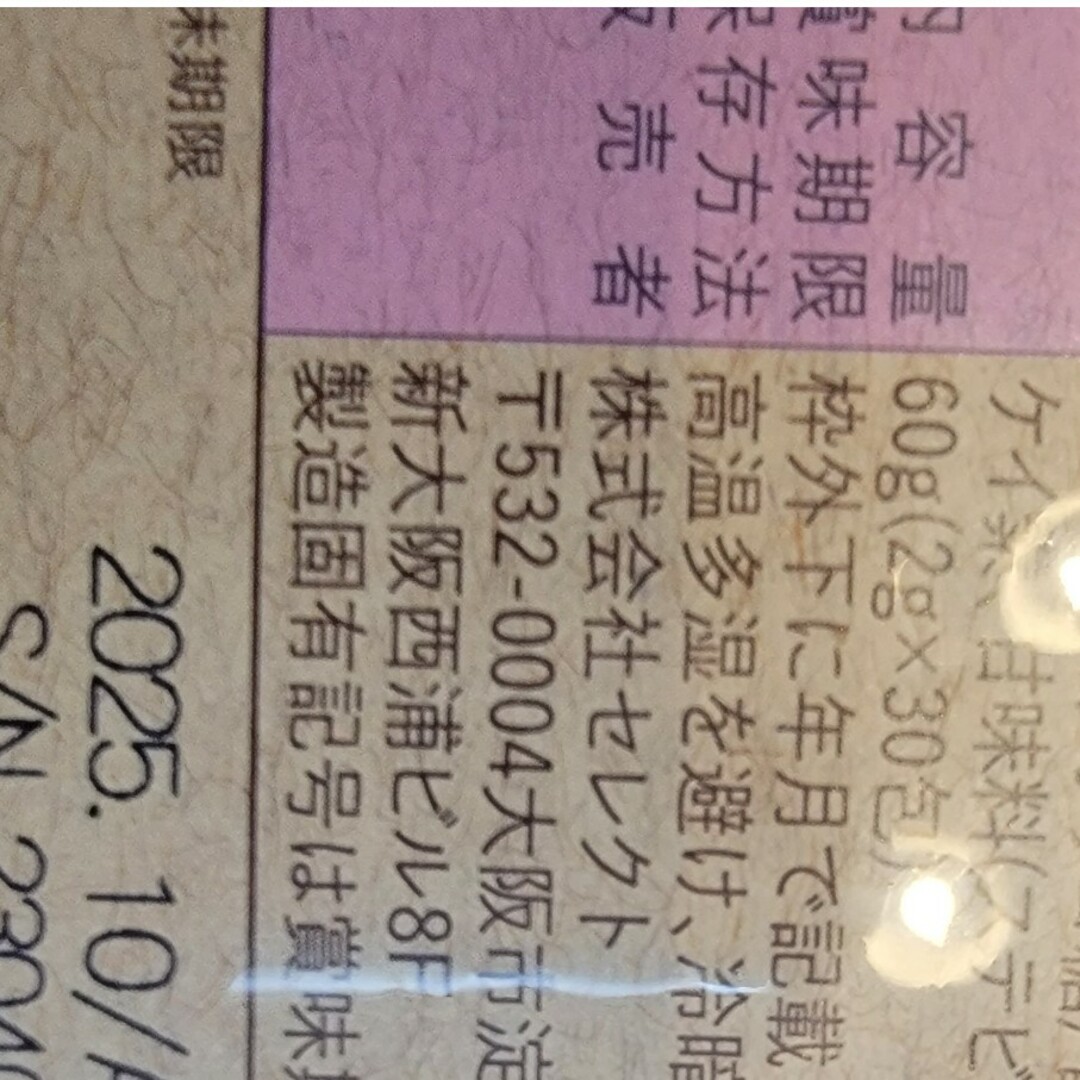 甘味料(ステビ
内容量 60g(2g×30包)
賞味期限 枠外下に年月で記載
保存方法 高温多湿を避け、冷暗
販売者 株式会社セレクト
〒532-0004大阪市淀
新大阪西浦ビル8F
製造固有記号は賞味
味期限 2025. 10/
S/N 2304